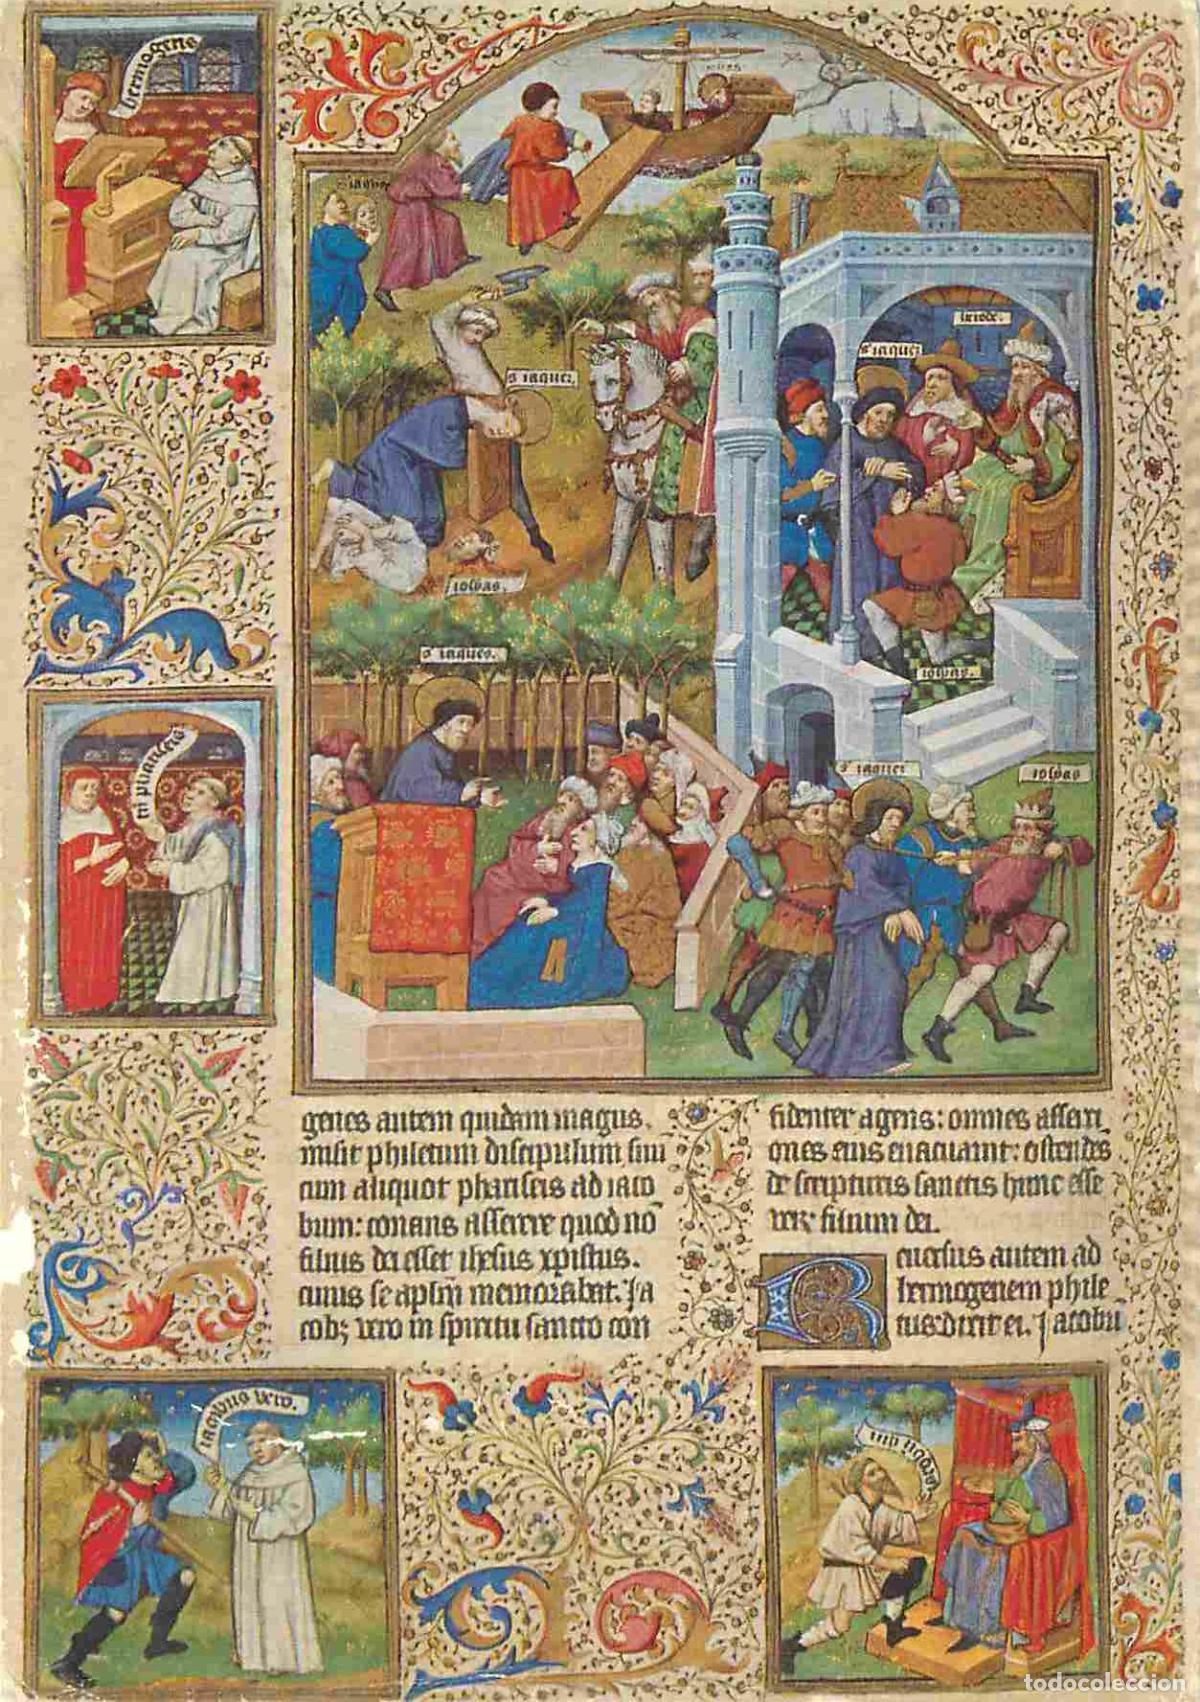 hermogenes
s iaques
iosyas
s iaques.
s iaques
herode.
s iaques.
iosyas.
iosyas.
s iaques
iosyas
Iacobus vero.
genes autem quidam magus.
misit philetum discipulum suu
cum aliquot phariseis ad iaco
bum: conans asserere quod no
filius dei esset ihesus xpistus.
cuius se apłm memorabat. Ja
cobꝫ vero in spiritu sancto con
fidenter agens: omnes asserti
ones eius euacuauit: ostendes
de scripturis sanctis hunc esse
verū filium dei.
Reuersus autem ad
hermogenem phile
tus: dixit ei. Jacobū
todocoleccion